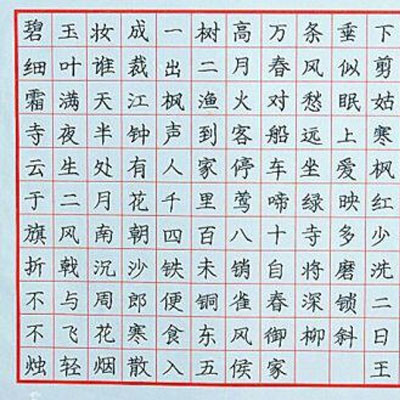 碧玉妆成一树高万条垂下
细叶谁裁出二月春风似剪
霜满天江枫渔火对愁眠姑
寺夜半钟声到客船远上寒
云生处有人家停车坐爱枫
于二月花千里莺啼绿映红
旗风南朝四百八十寺多少
折戟沉沙铁未销自将磨洗
不与周郎便铜雀春深锁二
不飞花寒食东风御柳斜日
烛轻烟散入五侯家 王